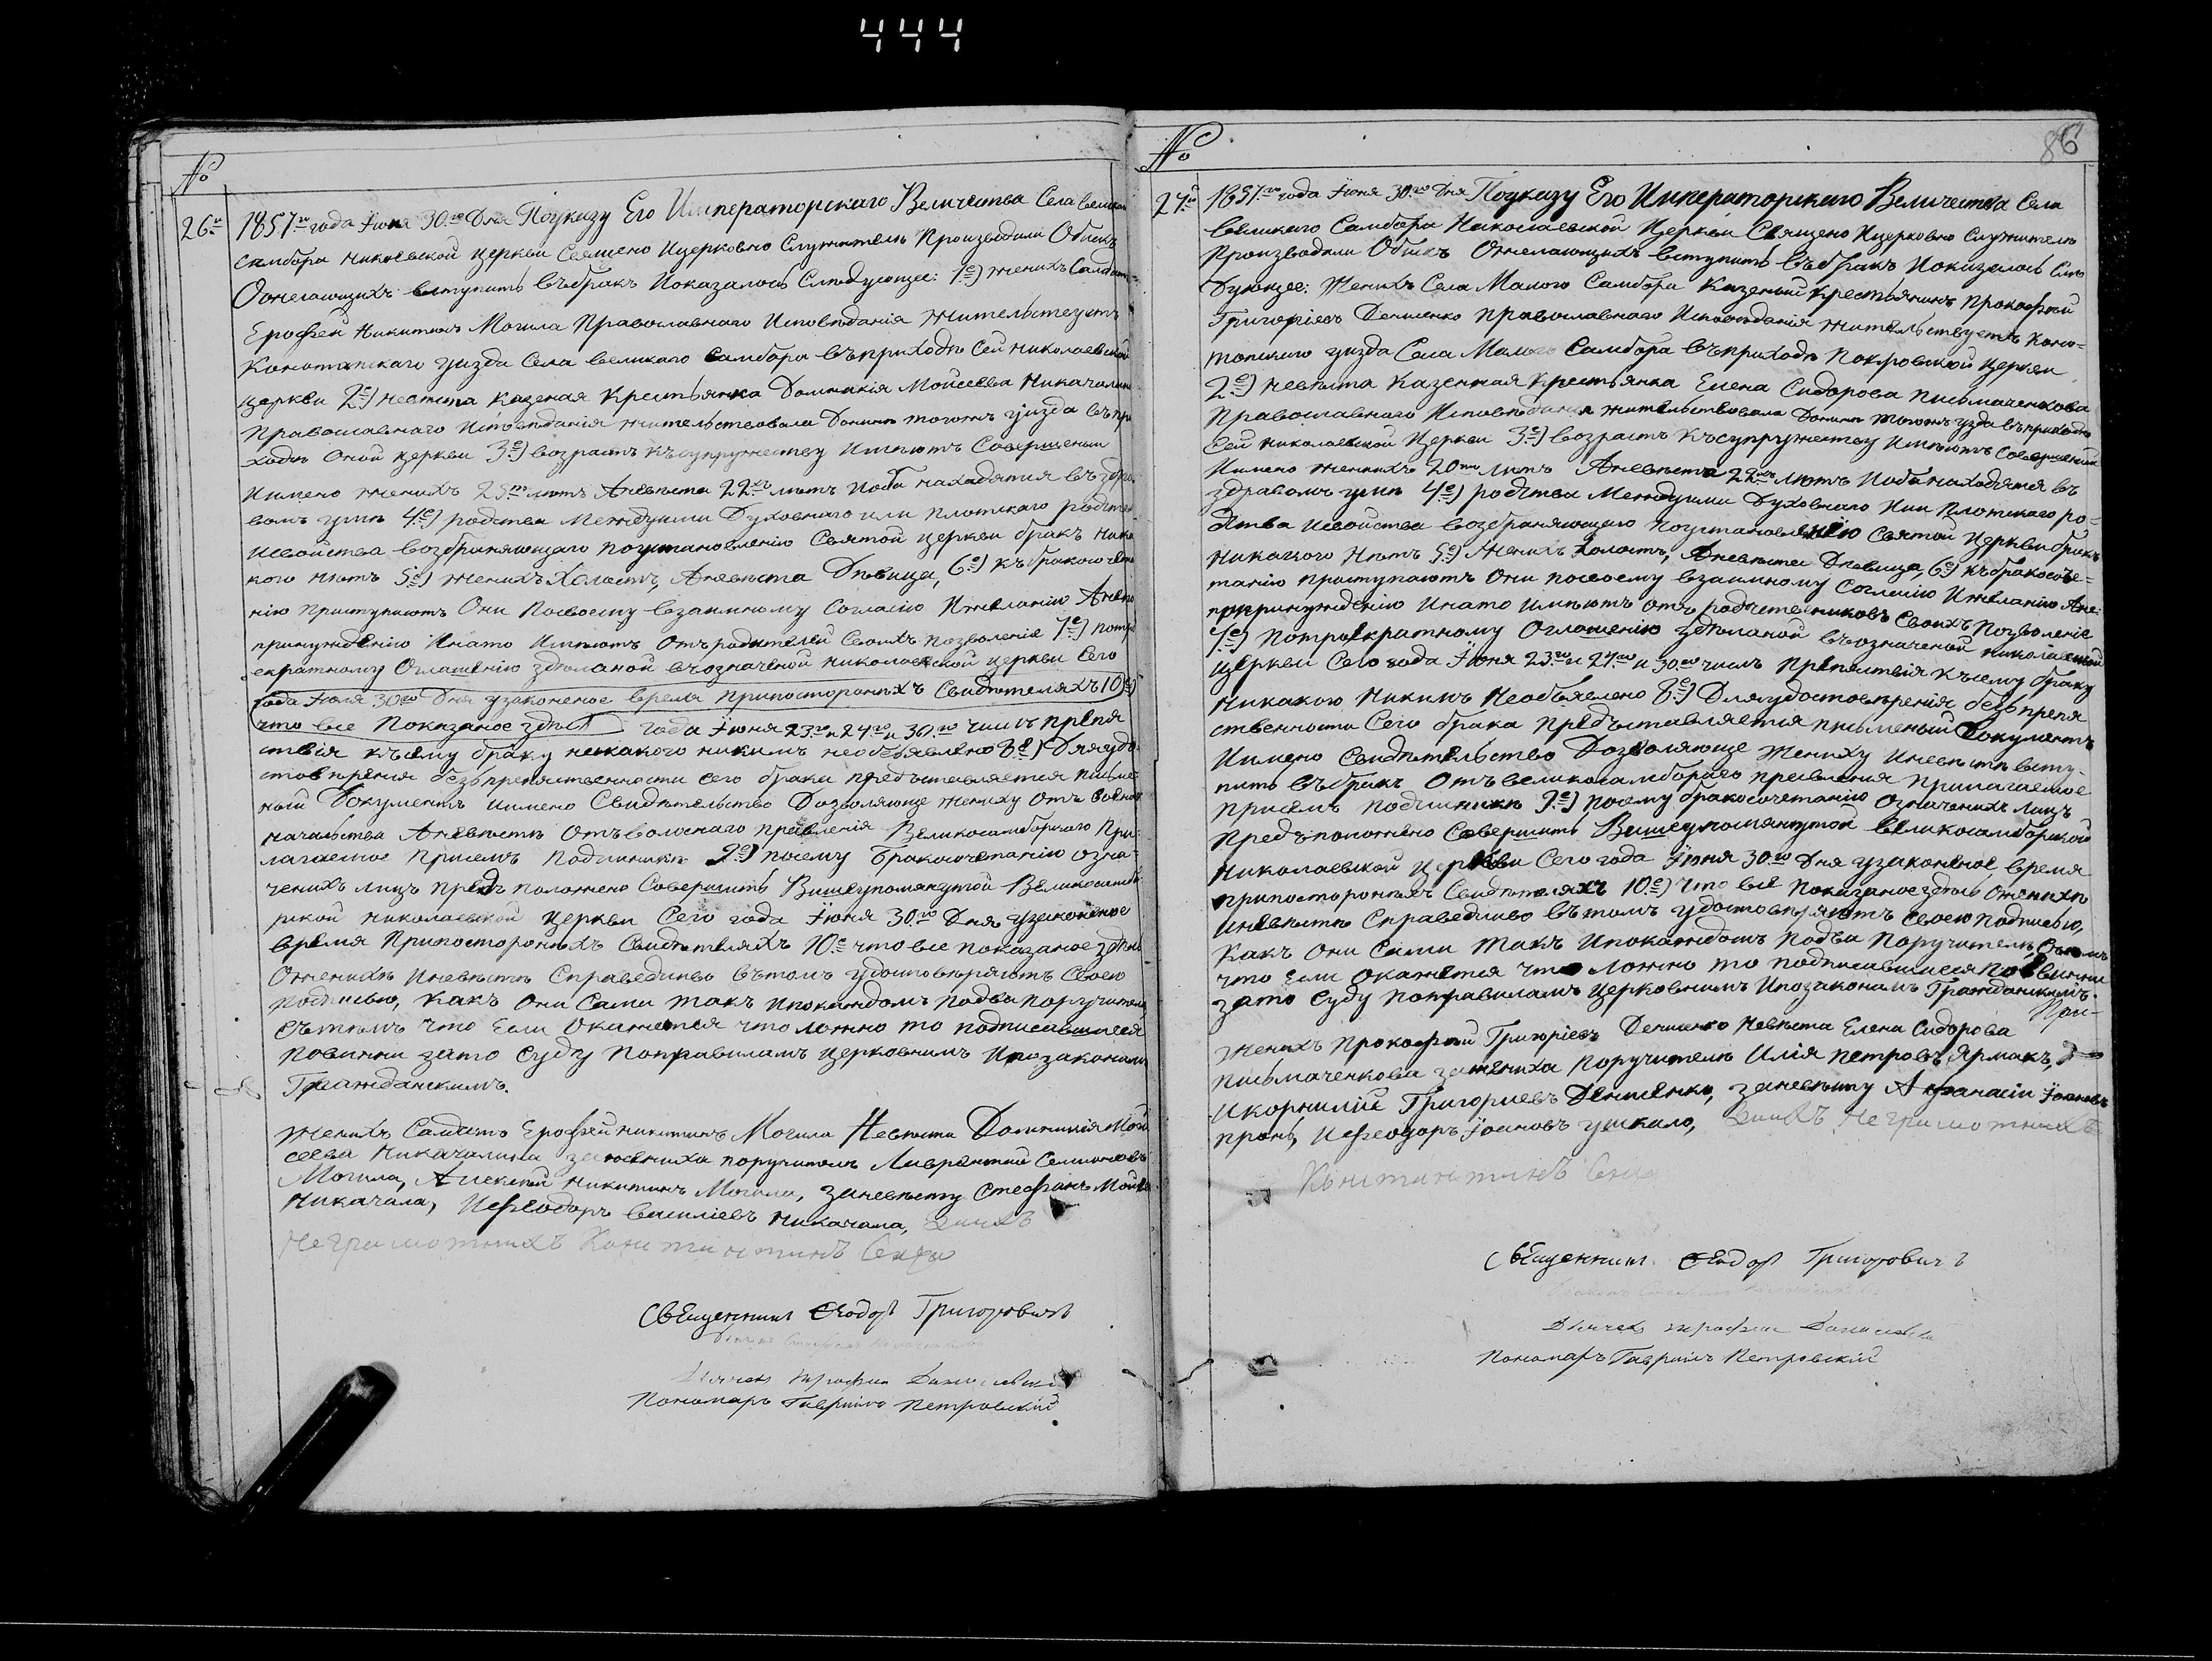 444
№
26.й 1857го года Іюня 30.го Дня Поуказу Его Императорскаго Величества Села великаго
самбора николевской церкви Священо Ицерковно Служители Производили Обыскъ
Ожелающихъ вступить въбракъ Показалось Слѣдующее: 1е) женихъ Салдатъ
Ерофѣй Никитинъ Могила Православнаго Исповѣданія Жительствуетъ
Конотопскаго уизда Села великаго Самбора въприходѣ Сей николаевской
Церкви 2е) невѣста казеная Крестьянка Домникія Мойсеева Никачалина
Православнаго Исповѣданія жительствовала Донинѣ тогожъ уизда въпри
ходѣ Оной церкви 3е) возрастъ Късупружеству Имѣютъ Совершеный
Имено женихъ 25ть лѣтъ Аневѣста 22хъ лѣтъ Иоба находятся въздра
вомъ умѣ 4е) родства Междуими Духовнаго или плотскаго родства
Исвойства возбраняющаго поустановленію Святой церкви бракъ Ника
кого нѣтъ 5е) женихъ Холостъ, Аневѣста Дѣвица, 6е) къ бракосочета
нію приступаютъ Они Посвоему взаимному Согласію Ижеланію Анепо
принужденію Инато Имѣютъ Отъродителей Своихъ позволеніе 7е) потро
екратному Оглашенію здѣланой въозначеной николаевской церкви Сего
года Іюня 30го Дня узаконеное время припостороннихъ Свидѣтеляхъ 10е)
что все Показаное здѣсь года Іюня 23го и 24го и 30.го чисмъ препя
ствія късему браку некакого никимъ необъявлено 8е) Дляудо
стовѣренія безъпрепяственности сего брака предъставляется письме
ный Документъ Имено Свидѣтельство Дозволяюще жениху отъ военого
начальства Аневѣстѣ Отъволоснаго правленія Великосамборскаго При
лагаемое Присемъ подлиникѣ 9е) посему бракосочетанію озна-
ченихъ лицъ предъ положено Совершить Вишеупомянутой Великосамбо
рской николаевской церкви Сего года Іюня 30.го Дня узаконеное
время припостороннихъ Свидѣтеляхъ 10.е что все показаное здѣсь
Оженихѣ Иневѣстѣ Справедливо Вътомъ удостовѣряютъ Своею
подписью, какъ они Сами такъ Ипокаждомъ подва поручителя
Сътѣмъ что Если Окажется чтоложно то подписавшиеся
Повинни зато Суду поправиламъ церковнимъ Ипозаконамъ
Гражданскимъ.
женихъ Салдатъ Ерофѣй никитинъ Могила Невѣста Домникія Мой
сеева Никачалина зажениха поручители Лаврентий Семионовъ
Могила, Алексѣй Никитинъ Могила, заневѣсту Стефанъ Мойсе
Никачала, Ифеодоръ василіевъ Никачала,
неграмотнихъ Констинтинъ
Священникъ Феодоръ Григоровичъ
Трофим
Пономаръ Гавриилъ Петровский
№
86
27.й 1857.го года Іюня 30.го Дня Поуказу Его Императорскаго Величества Села
Великаго Самбора Николаевской Церкви Священо Ицерковно Служители
Производили Обыскъ Ожелающихъ вступить въбракъ Показалось Слѣ
Дующее: женихъ Села Малого Самбора Казеный крестьянинъ Прокофѣй
Григоріевъ Демшенко православнаго Исповѣданія жительствуетъ Коно-
топскаго уизда Села Малого Самбора въприходѣ Покровской Церкви
2е) невѣста Казенная Крестьянка Елена Сидорова Письмаченкова
Православнаго Исповѣданія жительствовала Донинѣ Тогожъ узда въприходѣ
Сей николаевской Церкви 3е) возрастъ Късупружеству Имѣютъ Совершений
Имено женихъ 20ти лѣтъ Аневѣста 22хъ лѣтъ Иоба находятся въ
здравомъ умѣ 4е) родства Междуими Духовнаго Или плотскаго ро-
дства Исвойства возбраняющаго поустановленію Святой Церкви бракъ
никакого нѣтъ 5е) женихъ Холостъ, Аневѣста Дѣвица, 6е) къбракосоче-
танію приступаютъ Они посвоему взаимному Согласію Ижеланію Ане-
попринужденію Инато имѣютъ отъ родствениковъ Своихъ Позволеніе
7е) Потроекратному Оглошенію здѣланой въозначеной николаевской
Церкви Сего года Іюня 23.го и 24.го и 30.го чисмъ препяствія късему браку
никакого Никимъ Необъявлено 8е) Дляудостовѣренія безъпрепя
ственности Сего брака предъставляется письменый Документъ
Имено Свидѣтельство Дозволяюще Жениху Иневѣстѣ всту-
пить въбракъ Отъвеликосамбораго правления прилагаемое
присемъ подлиникѣ 9е) посему бракосочетанію означенихъ лицъ
Предъположено Совершить Вишеупомянутой великосамборской
Николаевской Церкви Сего года Іюня 30.го Дня узаконеное время
припостороннихъ Свидѣтеляхъ 10.е) что все показаное здѣсь Оженихѣ
Иневѣстѣ Справедливо вътомъ удостовѣряютъ своею подписью,
Какъ Они Сами такъ Ипокаждомъ подва Поручителя, Сътѣмъ
что Если окажется что ложно то подписавшиеся повинни
зато Суду поправиламъ Церковнимъ Ипозаконамъ Гражданскимъ.
женихъ Прокофѣй Григоріевъ Демшенко Невѣста Елена Сидорова
Письмаченкова зажениха Поручители Илія Петровъ Ярмакъ,
Икорнилій Григориевъ Демшенко, заневѣсту Афанасій Іоановъ
пронь, Ифеодоръ Іоановъ ушкало, неграмотнихъ
Констинтинъ
Священникъ Феодоръ Григоровичъ
Трофим
Пономаръ Гавриилъ Петровский